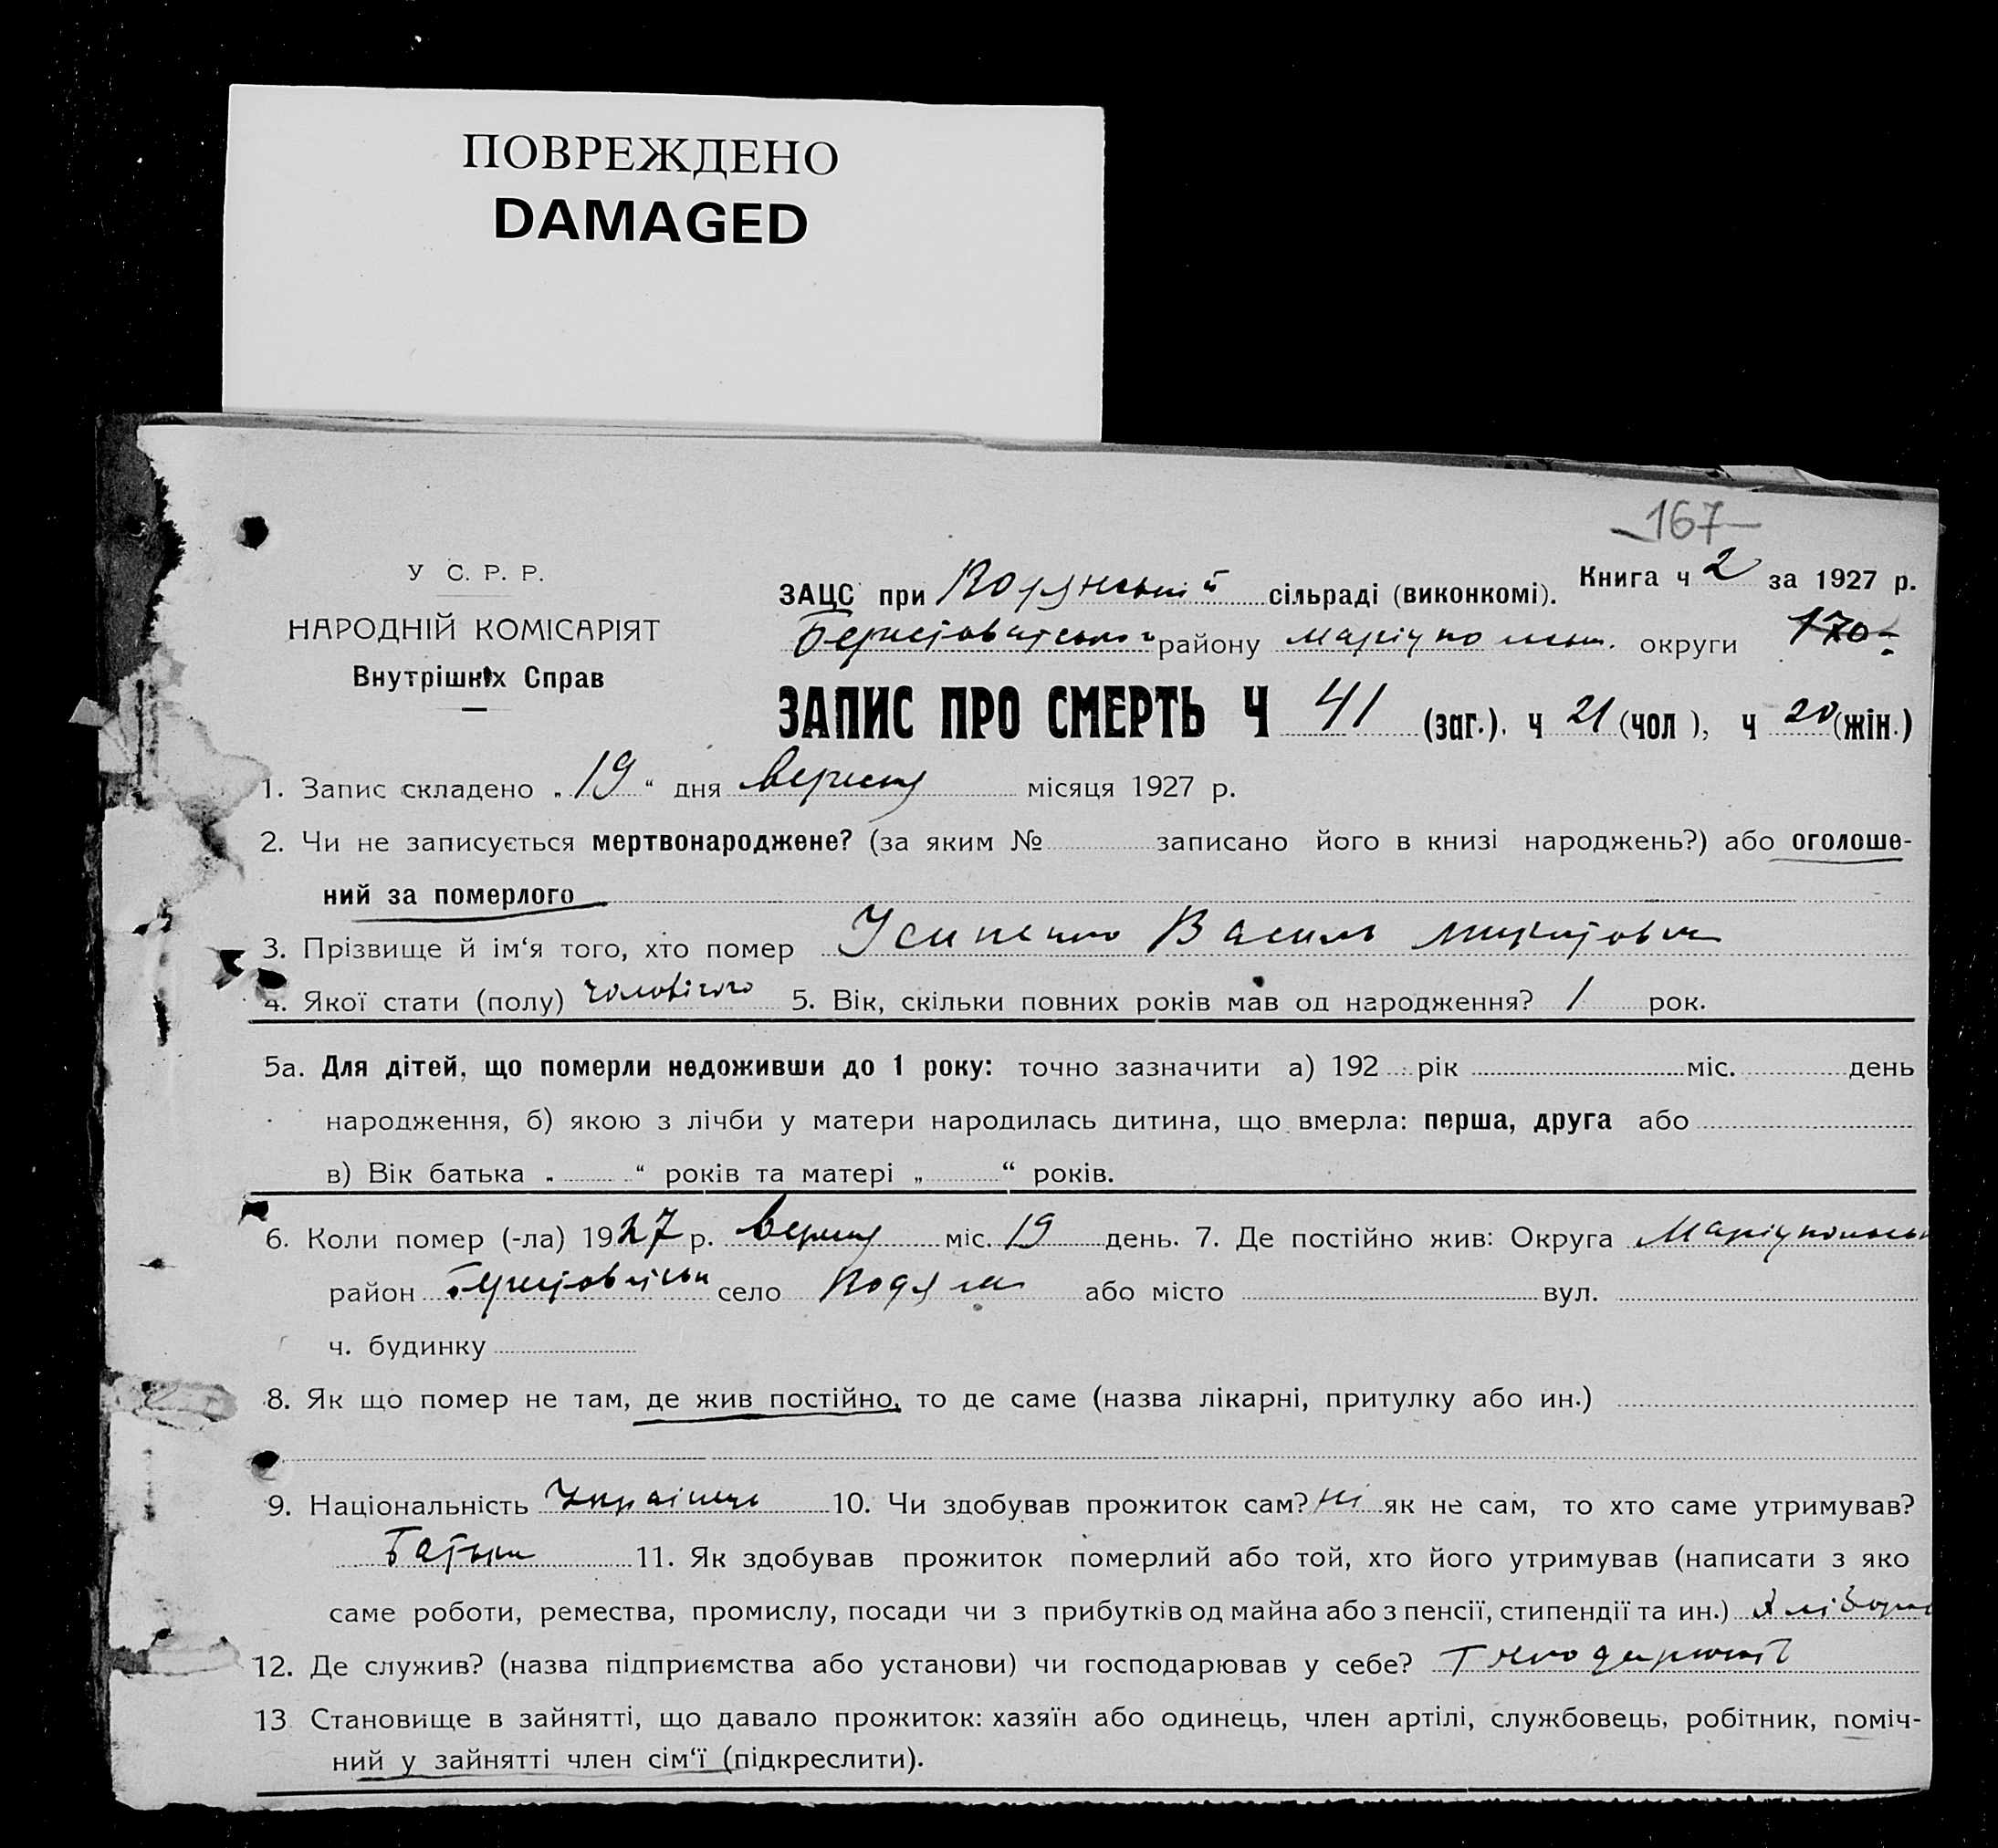 ПОВРЕЖДЕНО
DAMAGED
167
У С. Р. Р.
НАРОДНІЙ КОМІСАРІЯТ
Внутрішніх Справ
Книга ч 2 за 1927 р.
ЗАЦС при Водянській сільраді (виконкомі).
району Маріупольськ. округи 170
ЗАПИС ПРО СМЕРТЬ Ч 41 (заг.). ч 21 (чол), ч 20 (жін.)
1. Запис складено „19“ дня вересня місяця 1927 р.
2. Чи не записується мертвонароджене? (за яким № записано його в книзі народжень?) або оголоше-
ний за померлого
3. Прізвище й ім‘я того, хто помер Усипенко Василь Микитович
4. Якої стати (полу) чоловічого 5. Вік, скільки повних років мав од народження? 1 рок.
5а. Для дітей, що померли недоживши до 1 року: точно зазначити а) 192 рік міс. день
народження, б) якою з лічби у матери народилась дитина, що вмерла: перша, друга або
в) Вік батька „ “ років та матері „ “ років.
6. Коли помер (-ла) 1927 р. вересня міс. 19 день. 7. Де постійно жив: Округа Маріупольськ
район село Водяна або місто вул.
ч. будинку
8. Як що помер не там, де жив постійно, то де саме (назва лікарні, притулку або ин.)
9. Національність Українець 10. Чи здобував прожиток сам? Ні як не сам, то хто саме утримував?
Батьки 11. Як здобував прожиток померлий або той, хто його утримував (написати з яко
саме роботи, ремества, промислу, посади чи з прибутків од майна або з пенсії, стипендії та ин.) Хлібороб
12. Де служив? (назва підприємства або установи) чи господарював у себе?
13 Становище в зайнятті, що давало прожиток: хазяїн або одинець, член артілі, службовець, робітник, поміч-
ний у зайнятті член сім‘ї (підкреслити).